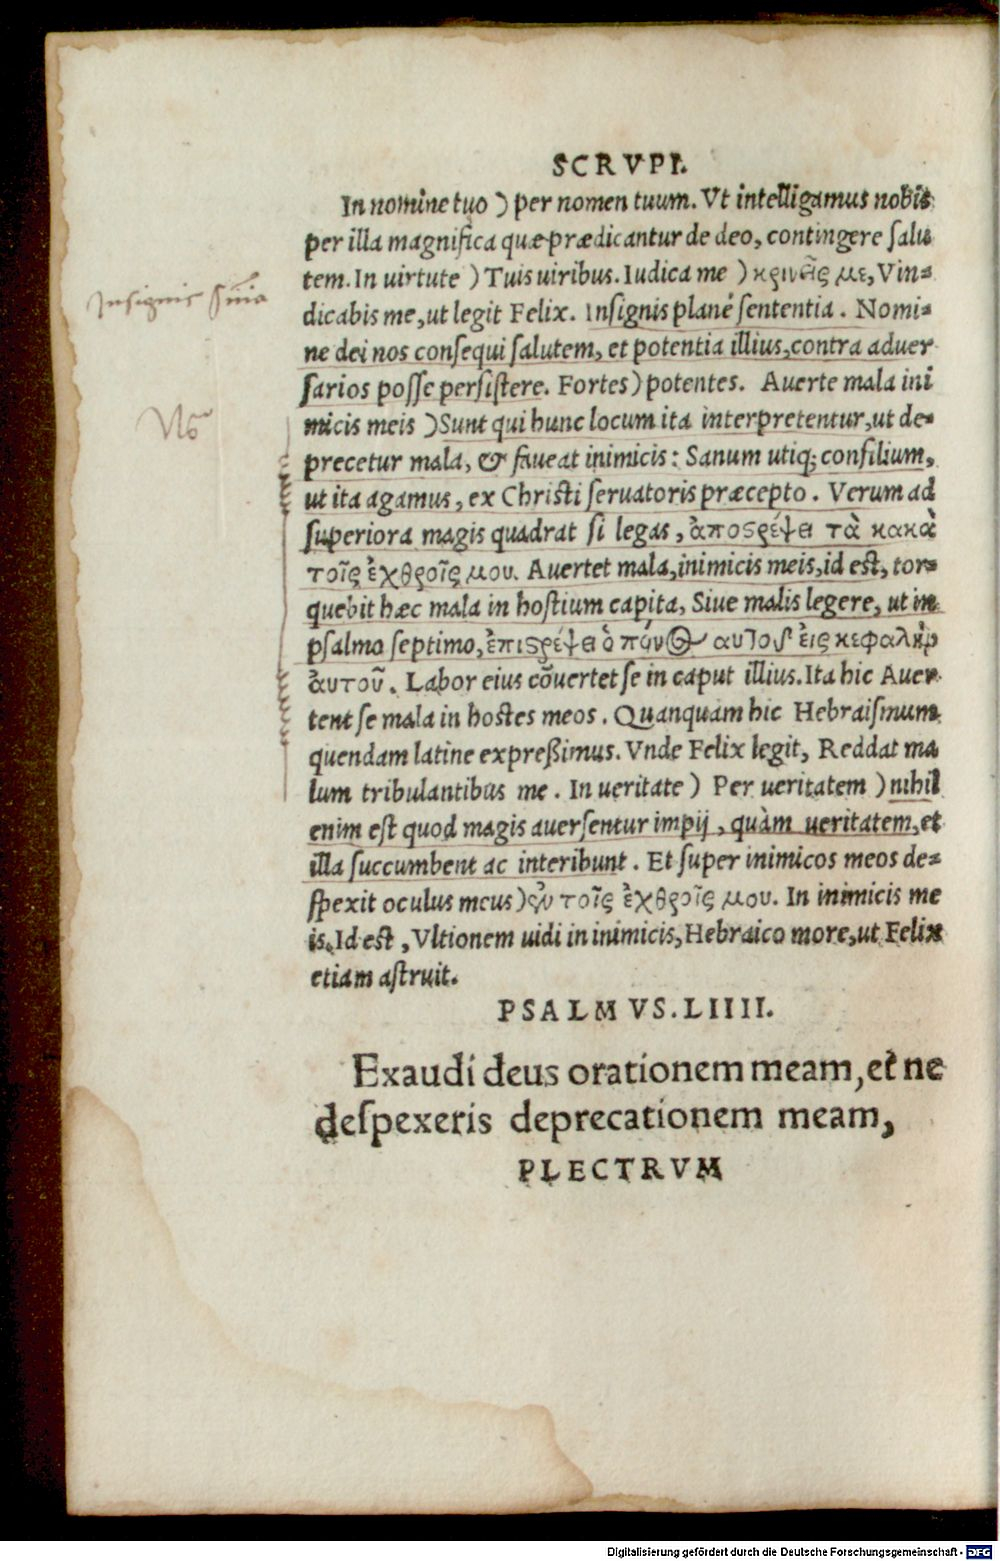 SCRVPI.
In nomine tuo ) per nomen tuum. Vt intelligamus nobis
per illa magnifica quæ prædicantur de deo, contingere ſalu
tem. In uirtute ) Tuis uiribus. Iudica me ) κρινεῖς με, Vin-
dicabis me, ut legit Felix. Inſignis planè ſententia. Nomi-
ne dei nos conſequi ſalutem, et potentia illius, contra aduer
ſarios poſſe perſiſtere. Fortes) potentes. Auerte mala ini
micis meis )Sunt qui hunc locum ita interpretentur, ut de-
precetur mala, & faueat inimicis: Sanum utiq; conſilium,
ut ita agamus, ex Chriſti ſeruatoris præcepto. Verum ad
ſuperiora magis quadrat ſi legas, ἀποϛρέψει τὰ κακὰ
τοῖς ἐχθροῖς μου. Auertet mala, inimicis meis, id eſt, tor-
quebit hæc mala in hoſtium capita, Siue malis legere, ut in
pſalmo ſeptimo, ἐπιϛρέψει ὁ πόνος αυτοῦ ἐις κεφαλὴν
ἀυτοῦ. Labor eius cōuertet ſe in caput illius. Ita hic Auer
tent ſe mala in hoſtes meos. Quanquam hic Hebraiſmum
quendam latine expreßimus. Vnde Felix legit, Reddat ma
lum tribulantibus me. In ueritate) Per ueritatem ) nihil
enim eſt quod magis auerſentur impij, quàm ueritatem, et
illa ſuccumbent ac interibunt. Et ſuper inimicos meos de-
ſpexit oculus meus) ἐν τοῖς ἐχθροῖς μου. In inimicis me
is. Id eſt, Vltionem uidi in inimicis, Hebraico more, ut Felix
etiam aſtruit.
PSALMVS. LIIII.
Exaudi deus orationem meam, et ne
deſpexeris deprecationem meam,
PLECTRVM
Insignis snĩa
No
Digitalisierung gefördert durch die Deutsche Forschungsgemeinschaft - DFG